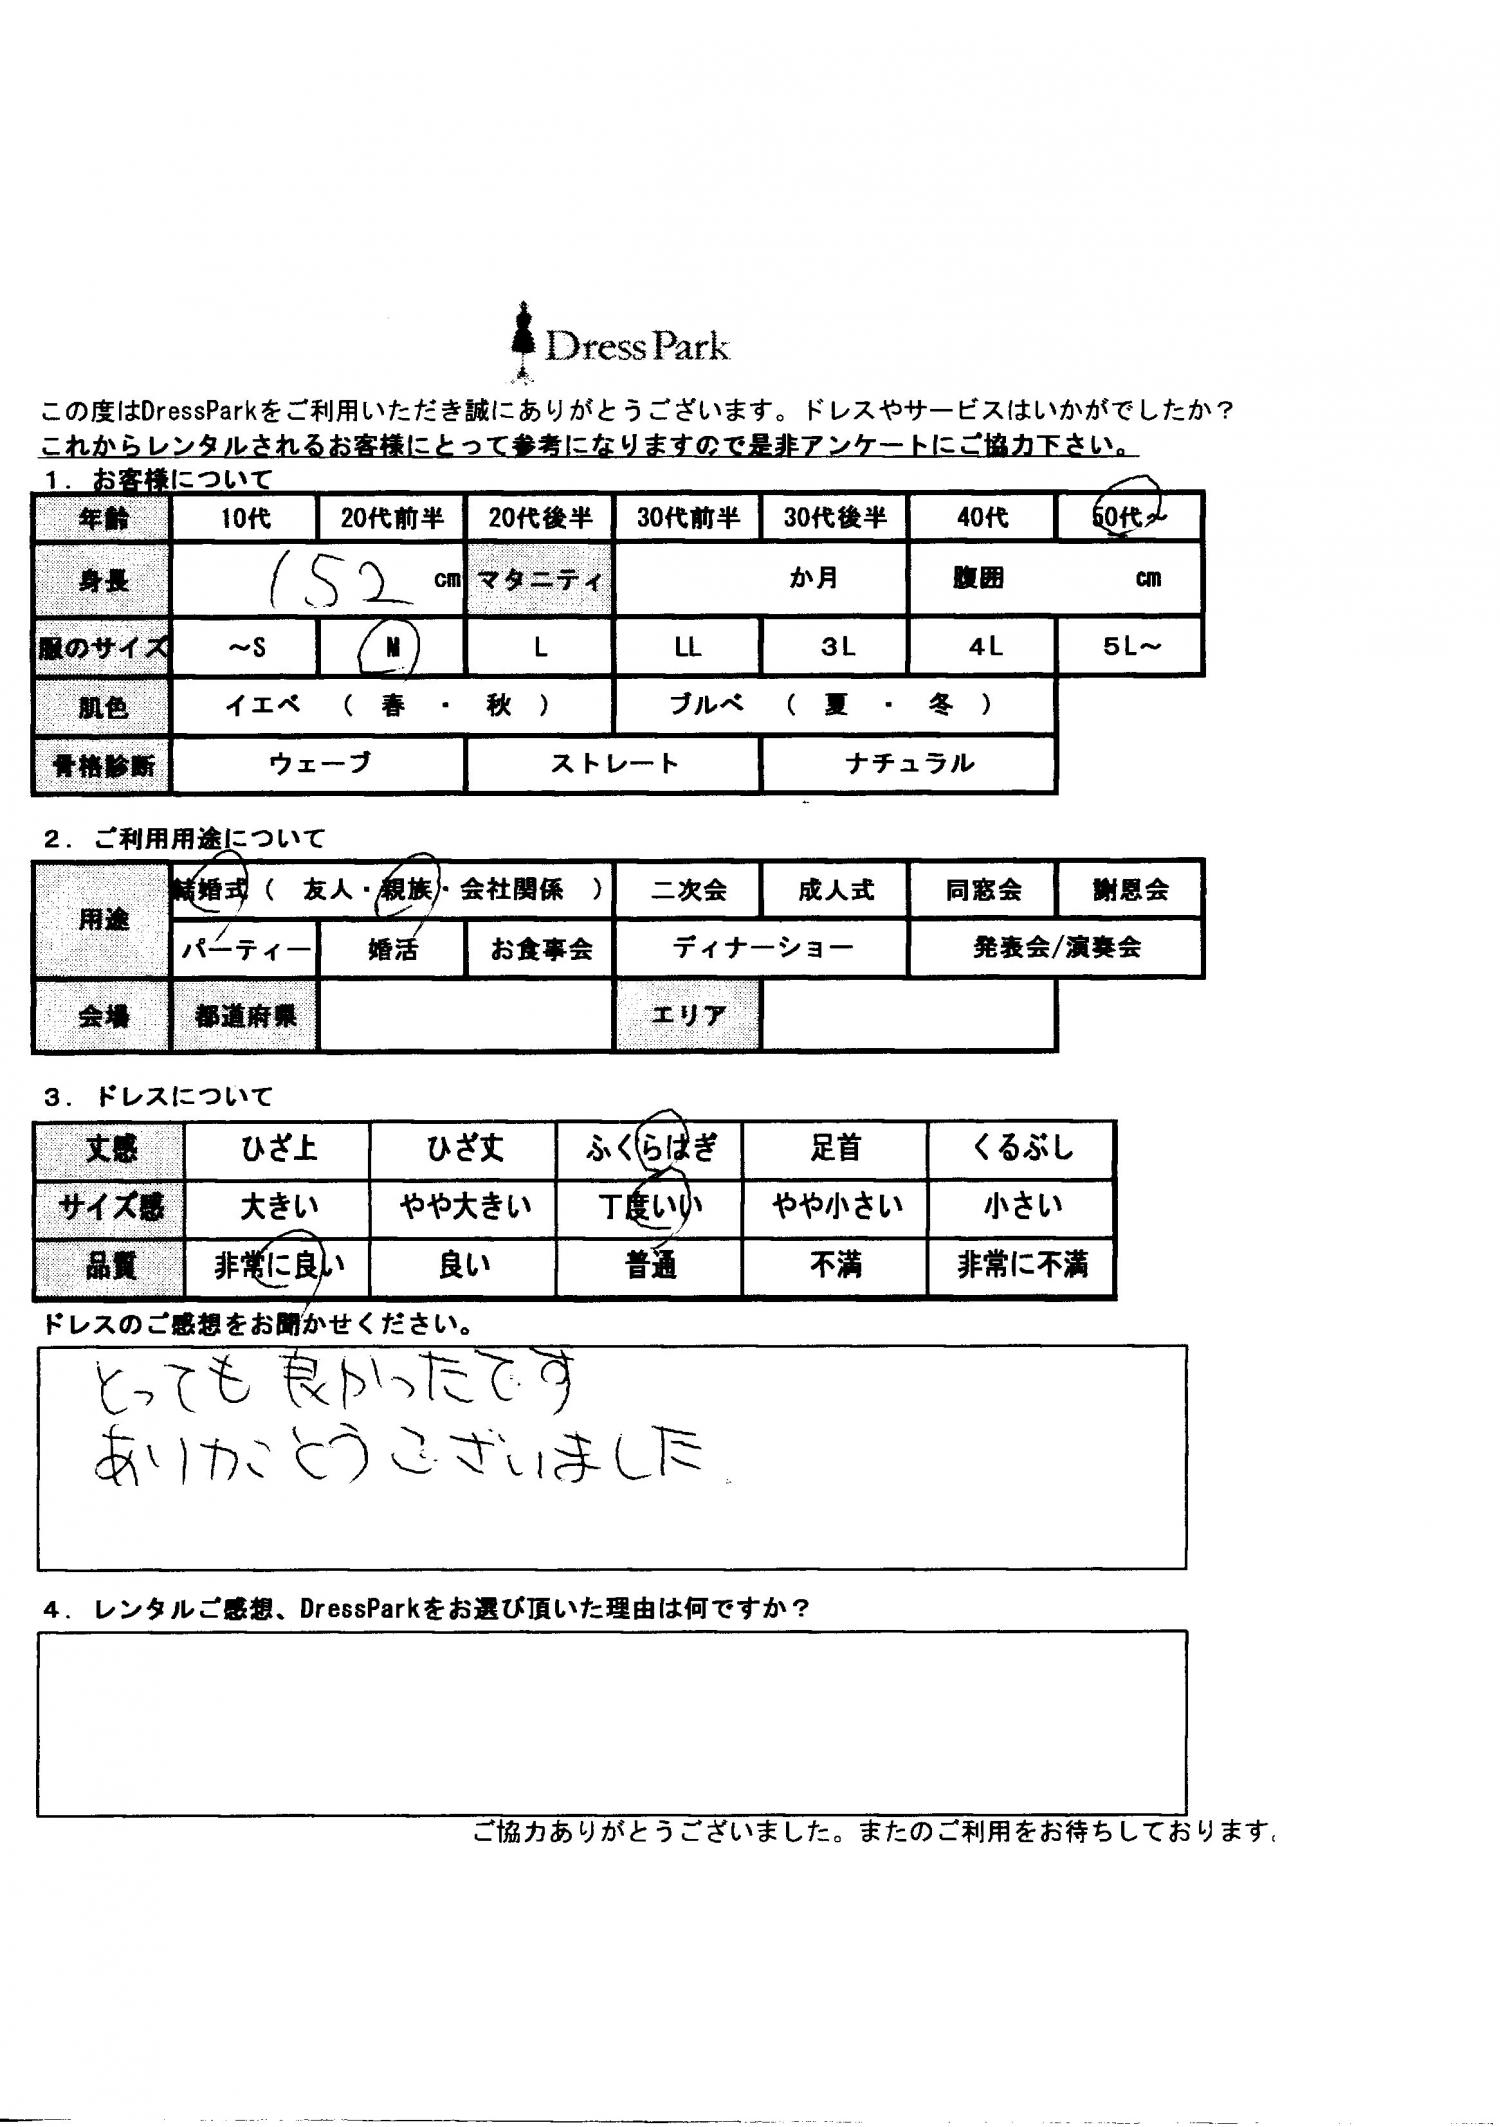 Dress Park
この度はDressParkをご利用いただき誠にありがとうございます。ドレスやサービスはいかがでしたか？
これからレンタルされるお客様にとって参考になりますので是非アンケートにご協力下さい。
１．お客様について
年齢 10代 20代前半 20代後半 30代前半 30代後半 40代 50代～
身長 152 cm マタニティ か月 腹囲 cm
服のサイズ ～S M L LL 3L 4L 5L～
肌色 イエベ （ 春 ・ 秋 ） ブルベ （ 夏 ・ 冬 ）
骨格診断 ウェーブ ストレート ナチュラル
２．ご利用用途について
用途 結婚式（ 友人・親族・会社関係 ） 二次会 成人式 同窓会 謝恩会
パーティー 婚活 お食事会 ディナーショー 発表会/演奏会
会場 都道府県 エリア
３．ドレスについて
丈感 ひざ上 ひざ丈 ふくらはぎ 足首 くるぶし
サイズ感 大きい やや大きい 丁度いい やや小さい 小さい
品質 非常に良い 良い 普通 不満 非常に不満
ドレスのご感想をお聞かせください。
とっても良かったです
ありがとうございました
４．レンタルご感想、DressParkをお選び頂いた理由は何ですか？
ご協力ありがとうございました。またのご利用をお待ちしております。